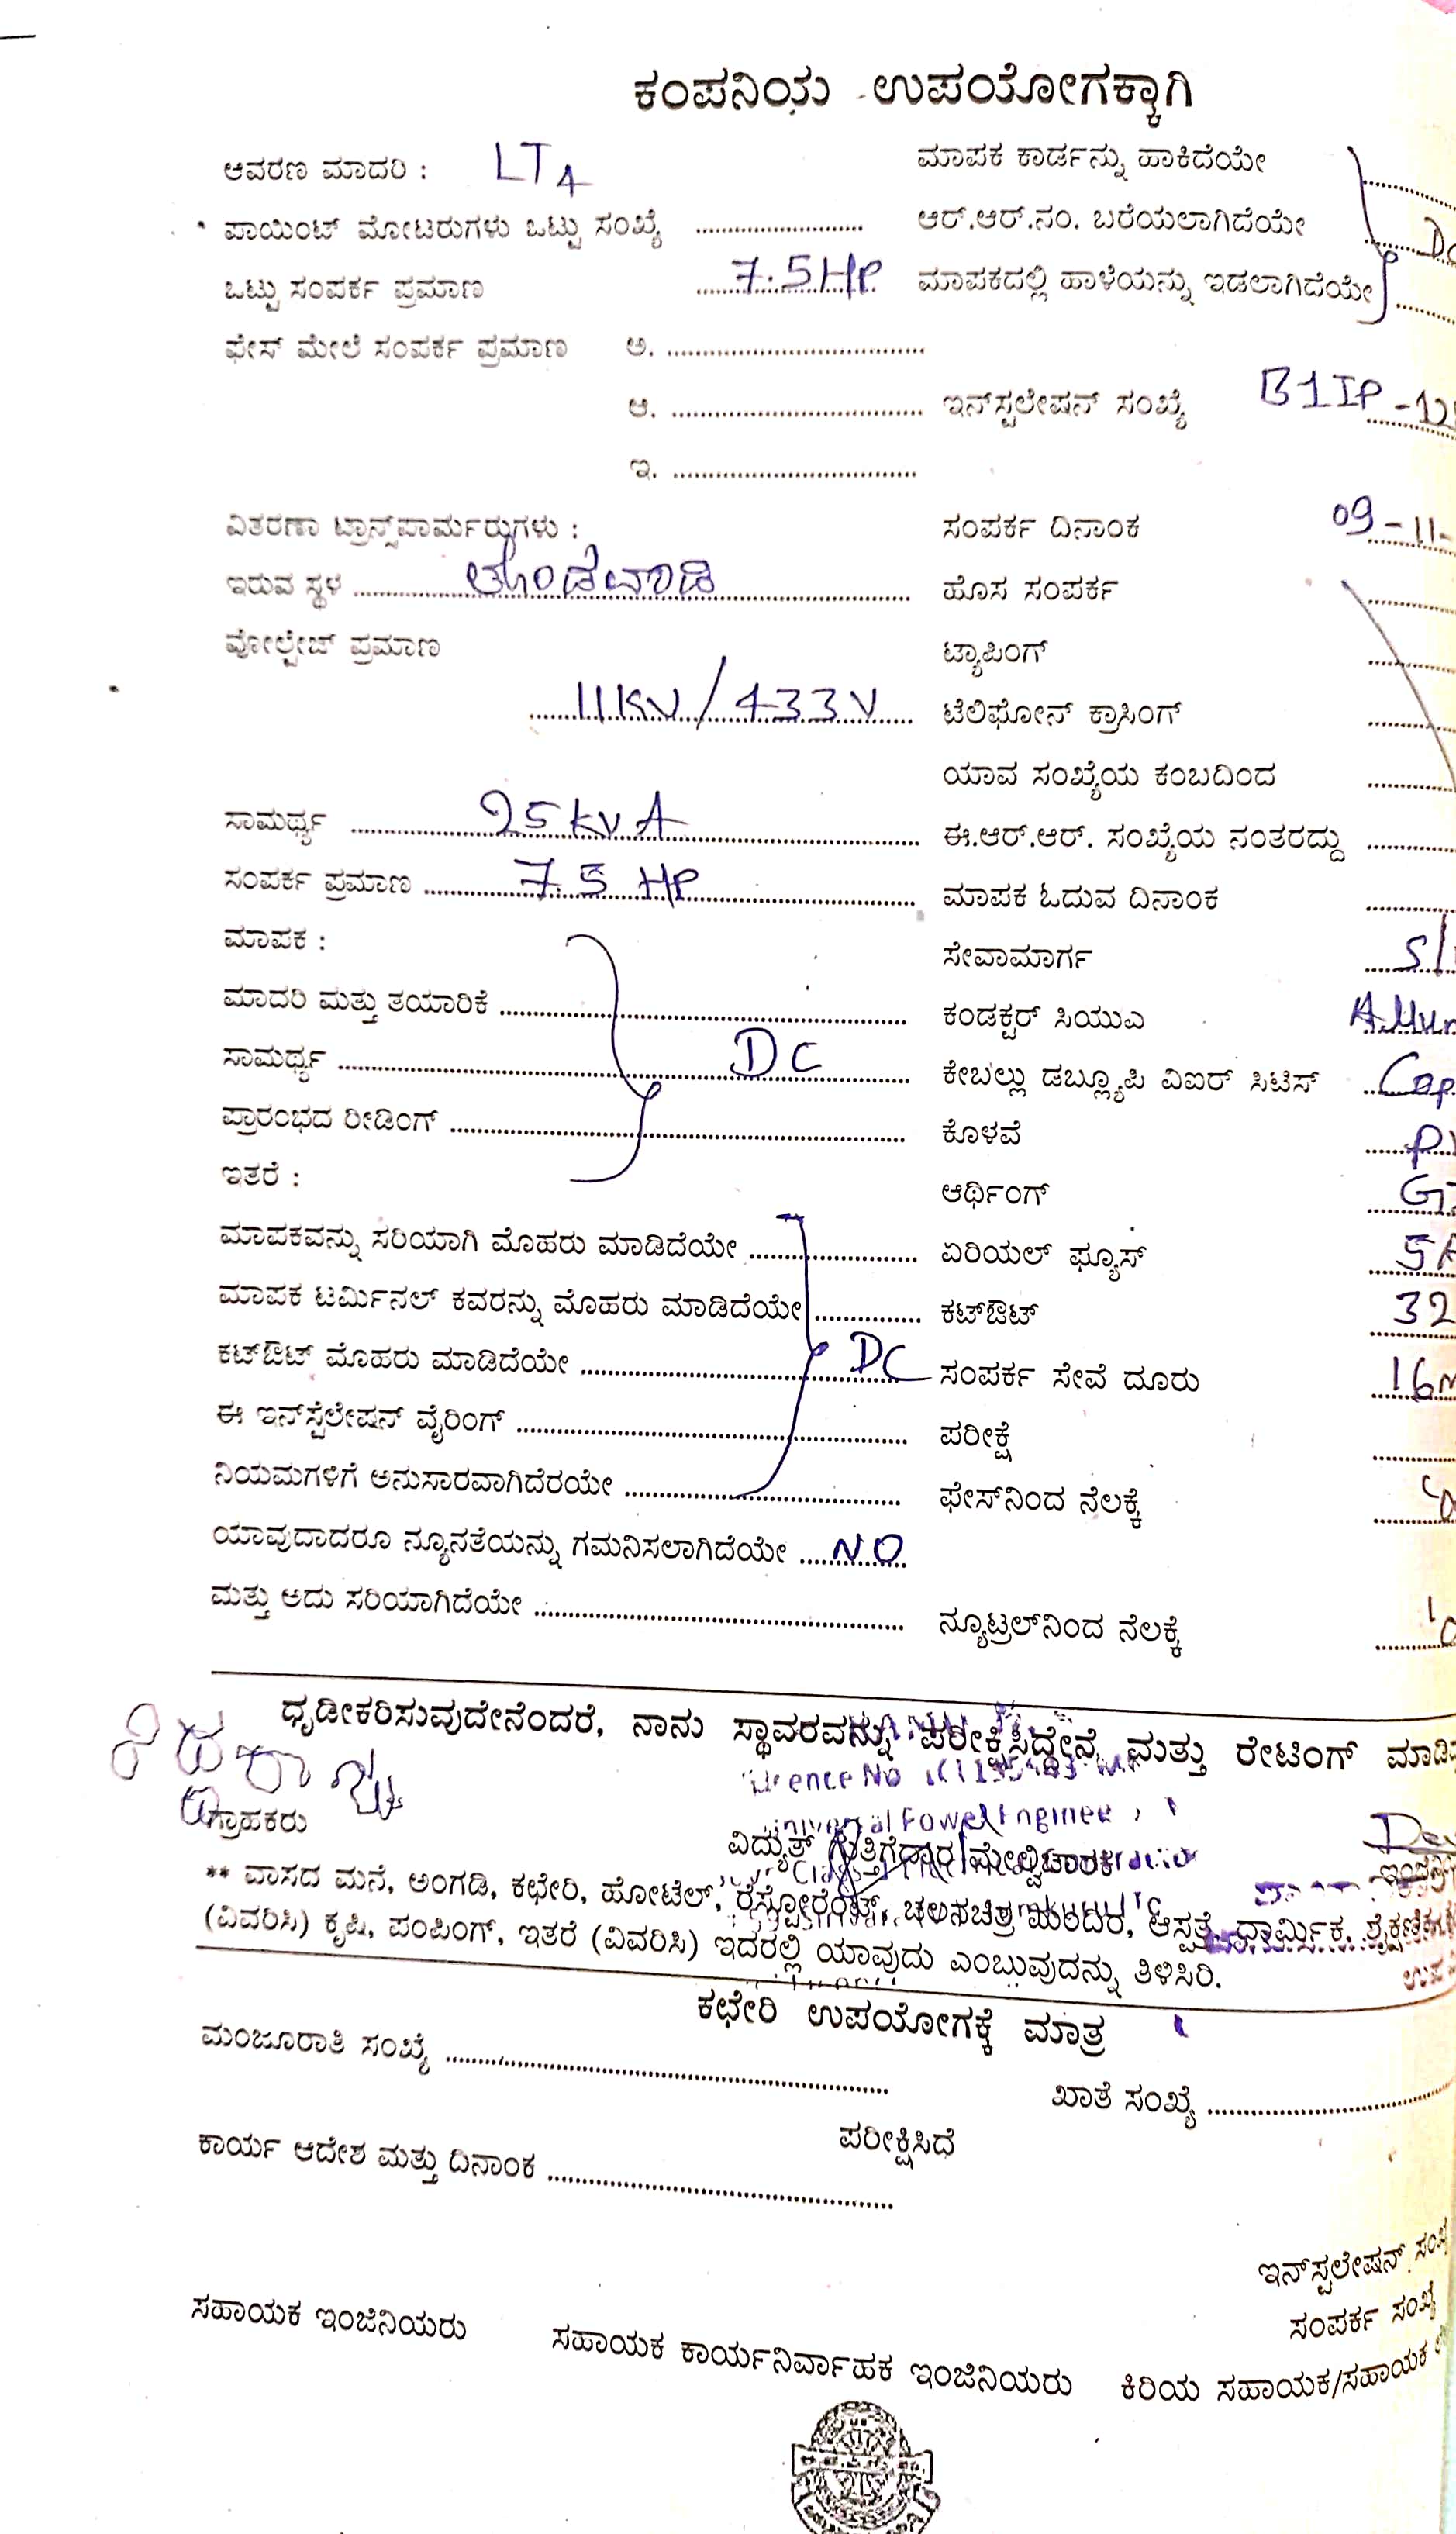 ಕಂಪನಿಯ ಉಪಯೋಗಕ್ಕಾಗಿ
ಆವರಣ ಮಾದರಿ : LT4 ಮಾಪಕ ಕಾರ್ಡನ್ನು ಹಾಕಿದೆಯೇ
ಪಾಯಿಂಟ್ ಮೋಟರುಗಳು ಒಟ್ಟು ಸಂಖ್ಯೆ ಆರ್.ಆರ್.ನಂ. ಬರೆಯಲಾಗಿದೆಯೇ
ಒಟ್ಟು ಸಂಪರ್ಕ ಪ್ರಮಾಣ 7.5HP ಮಾಪಕದಲ್ಲಿ ಹಾಳೆಯನ್ನು ಇಡಲಾಗಿದೆಯೇ
ಫೇಸ್ ಮೇಲೆ ಸಂಪರ್ಕ ಪ್ರಮಾಣ ಅ.
ಆ. ಇನ್‌ಸ್ಟಲೇಷನ್ ಸಂಖ್ಯೆ B1IP
ಇ.
ವಿತರಣಾ ಟ್ರಾನ್ಸ್‌ಪಾರ್ಮರುಗಳು : ಸಂಪರ್ಕ ದಿನಾಂಕ 09-11-
ಇರುವ ಸ್ಥಳ ಹೊಸ ಸಂಪರ್ಕ
ವೋಲ್ಟೇಜ್ ಪ್ರಮಾಣ ಟ್ಯಾಪಿಂಗ್
11KV/433V ಟೆಲಿಫೋನ್ ಕ್ರಾಸಿಂಗ್
ಯಾವ ಸಂಖ್ಯೆಯ ಕಂಬದಿಂದ
ಸಾಮರ್ಥ್ಯ 25KVA ಈ.ಆರ್.ಆರ್. ಸಂಖ್ಯೆಯ ನಂತರದ್ದು
ಸಂಪರ್ಕ ಪ್ರಮಾಣ 7.5 HP ಮಾಪಕ ಓದುವ ದಿನಾಂಕ
ಮಾಪಕ : ಸೇವಾಮಾರ್ಗ
ಮಾದರಿ ಮತ್ತು ತಯಾರಿಕೆ ಕಂಡಕ್ಟರ್ ಸಿಯುಎ
ಸಾಮರ್ಥ್ಯ DC ಕೇಬಲ್ಲು ಡಬ್ಲ್ಯೂಪಿ ವಿಐರ್ ಸಿಟಿಸ್
ಪ್ರಾರಂಭದ ರೀಡಿಂಗ್ ಕೊಳವೆ
ಇತರೆ : ಆರ್ಥಿಂಗ್
ಮಾಪಕವನ್ನು ಸರಿಯಾಗಿ ಮೊಹರು ಮಾಡಿದೆಯೇ ಏರಿಯಲ್ ಫ್ಯೂಸ್
ಮಾಪಕ ಟರ್ಮಿನಲ್ ಕವರನ್ನು ಮೊಹರು ಮಾಡಿದೆಯೇ ಕಟ್‌ಔಟ್ 32
ಕಟ್‌ಔಟ್ ಮೊಹರು ಮಾಡಿದೆಯೇ DC ಸಂಪರ್ಕ ಸೇವೆ ದೂರು 16m
ಈ ಇನ್‌ಸ್ಟೆಲೇಷನ್ ವೈರಿಂಗ್ ಪರೀಕ್ಷೆ
ನಿಯಮಗಳಿಗೆ ಅನುಸಾರವಾಗಿದೆರಯೇ ಫೇಸ್‌ನಿಂದ ನೆಲಕ್ಕೆ
ಯಾವುದಾದರೂ ನ್ಯೂನತೆಯನ್ನು ಗಮನಿಸಲಾಗಿದೆಯೇ NO
ಮತ್ತು ಅದು ಸರಿಯಾಗಿದೆಯೇ ನ್ಯೂಟ್ರಲ್‌ನಿಂದ ನೆಲಕ್ಕೆ
ಧೃಡೀಕರಿಸುವುದೇನೆಂದರೆ, ನಾನು ಸ್ಥಾವರವನ್ನು ಪರೀಕ್ಷಿಸಿದ್ದೇನೆ ಮತ್ತು ರೇಟಿಂಗ್
ಗ್ರಾಹಕರು ವಿದ್ಯುತ್ ಗುತ್ತಿಗೆದಾರ/ಮೇಲ್ವಿಚಾರಕ
** ವಾಸದ ಮನೆ, ಅಂಗಡಿ, ಕಛೇರಿ, ಹೋಟೆಲ್, ರೆಸ್ಟೋರೆಂಟ್, ಚಲನಚಿತ್ರ ಮಂದಿರ, ಆಸ್ಪತ್ರೆ, ಧಾರ್ಮಿಕ,
(ವಿವರಿಸಿ) ಕೃಷಿ, ಪಂಪಿಂಗ್, ಇತರೆ (ವಿವರಿಸಿ) ಇದರಲ್ಲಿ ಯಾವುದು ಎಂಬುವುದನ್ನು ತಿಳಿಸಿರಿ.
ಕಛೇರಿ ಉಪಯೋಗಕ್ಕೆ ಮಾತ್ರ
ಮಂಜೂರಾತಿ ಸಂಖ್ಯೆ ಖಾತೆ ಸಂಖ್ಯೆ
ಪರೀಕ್ಷಿಸಿದೆ
ಕಾರ್ಯ ಆದೇಶ ಮತ್ತು ದಿನಾಂಕ
ಇನ್‌ಸ್ಟಲೇಷನ್ ಸಂಖ್ಯೆ
ಸಂಪರ್ಕ ಸಂಖ್ಯೆ
ಸಹಾಯಕ ಇಂಜಿನಿಯರು ಸಹಾಯಕ ಕಾರ್ಯನಿರ್ವಾಹಕ ಇಂಜಿನಿಯರು ಕಿರಿಯ ಸಹಾಯಕ/ಸಹಾಯಕ